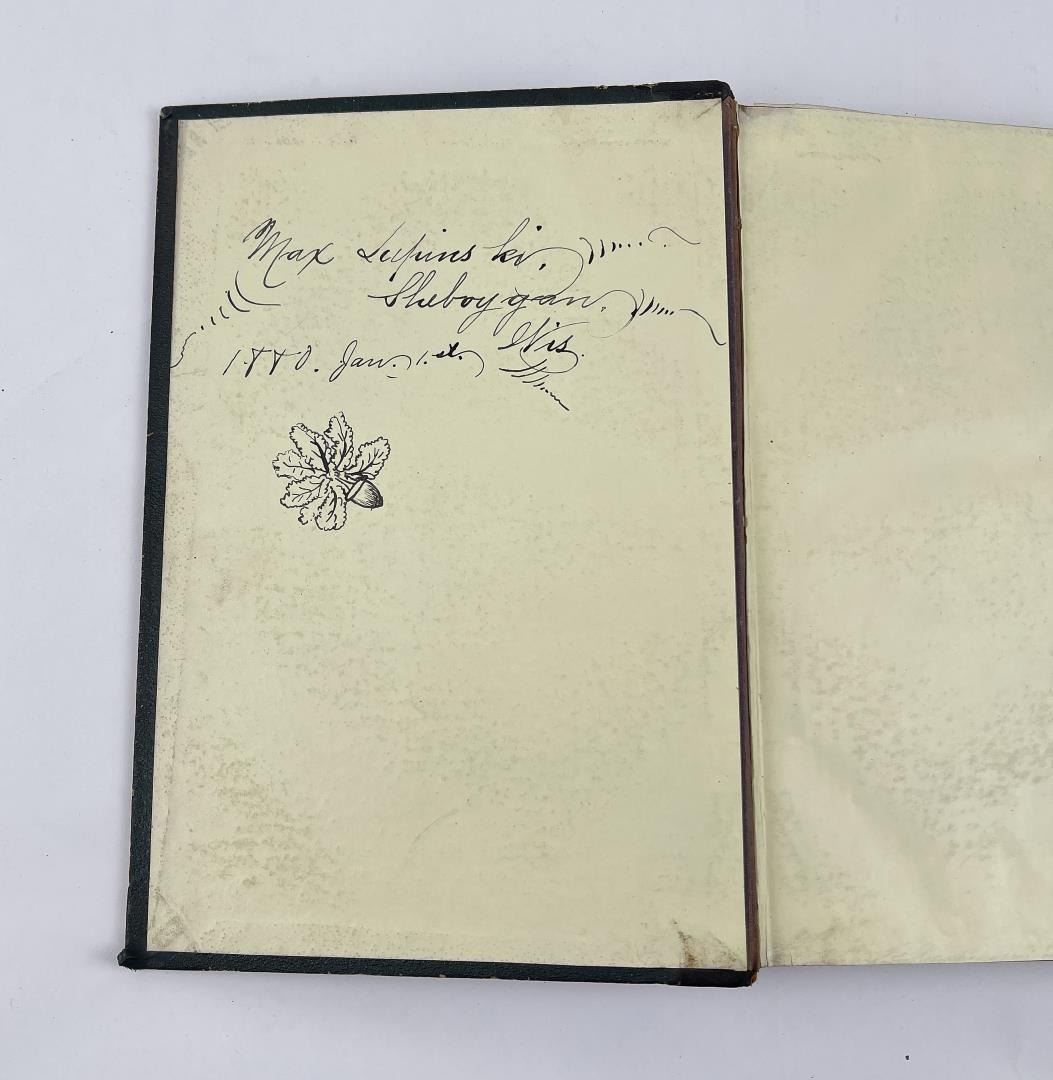 Max Lupinski,
Sheboygan,
Wis.
1880. Jan. 1.st.